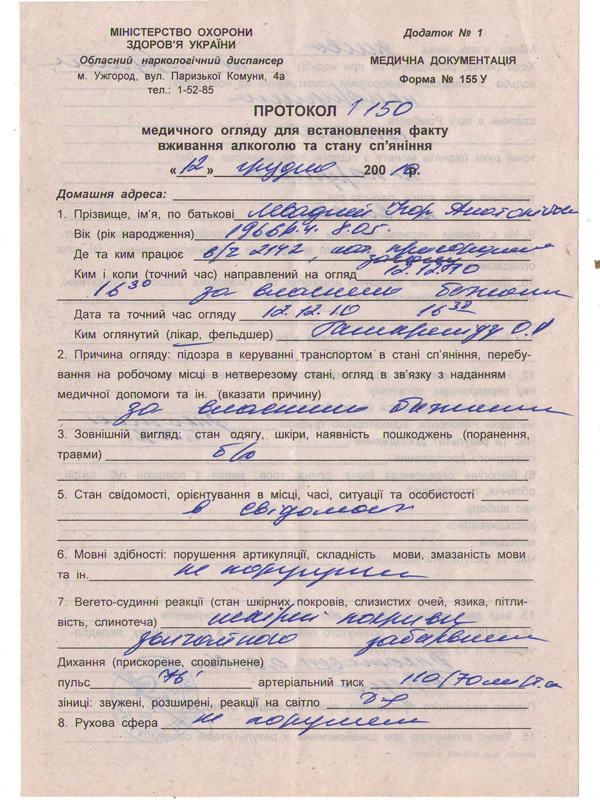 МІНІСТЕРСТВО ОХОРОНИ
ЗДОРОВ'Я УКРАЇНИ
Обласний наркологічний диспансер
м. Ужгород, вул. Паризької Комуни, 4а
тел.: 1-52-85
Додаток № 1
МЕДИЧНА ДОКУМЕНТАЦІЯ
Форма № 155 У
ПРОТОКОЛ 1150
медичного огляду для встановлення факту
вживання алкоголю та стану сп'яніння
«12» грудня 200 10 р.
Домашня адреса:
1. Прізвище, ім'я, по батькові Ігор Анатолійович
Вік (рік народження) 1966 р.н. 8.05.
Де та ким працює в/ч 2142,
Ким і коли (точний час) направлений на огляд 12.12.10
16 30 за власним бажанням
Дата та точний час огляду 12.12.10 16 32
Ким оглянутий (лікар, фельдшер)
2. Причина огляду: підозра в керуванні транспортом в стані сп'яніння, перебу-
вання на робочому місці в нетверезому стані, огляд в зв'язку з наданням
медичної допомоги та ін. (вказати причину)
за власним бажанням
3. Зовнішній вигляд: стан одягу, шкіри, наявність пошкоджень (поранення,
травми) б/о
5. Стан свідомості, орієнтування в місці, часі, ситуації та особистості
в свідомості
6. Мовні здібності: порушення артикуляції, складність мови, змазаність мови
та ін. не порушені
7. Вегето-судинні реакції (стан шкірних покровів, слизистих очей, язика, пітли-
вість, слинотеча) шкірні покриви
звичайного забарвлення
Дихання (прискорене, сповільнене)
пульс 76' артеріальний тиск 110/70 мм/т.ст
зіниці: звужені, розширені, реакції на світло D=S
8. Рухова сфера не порушена